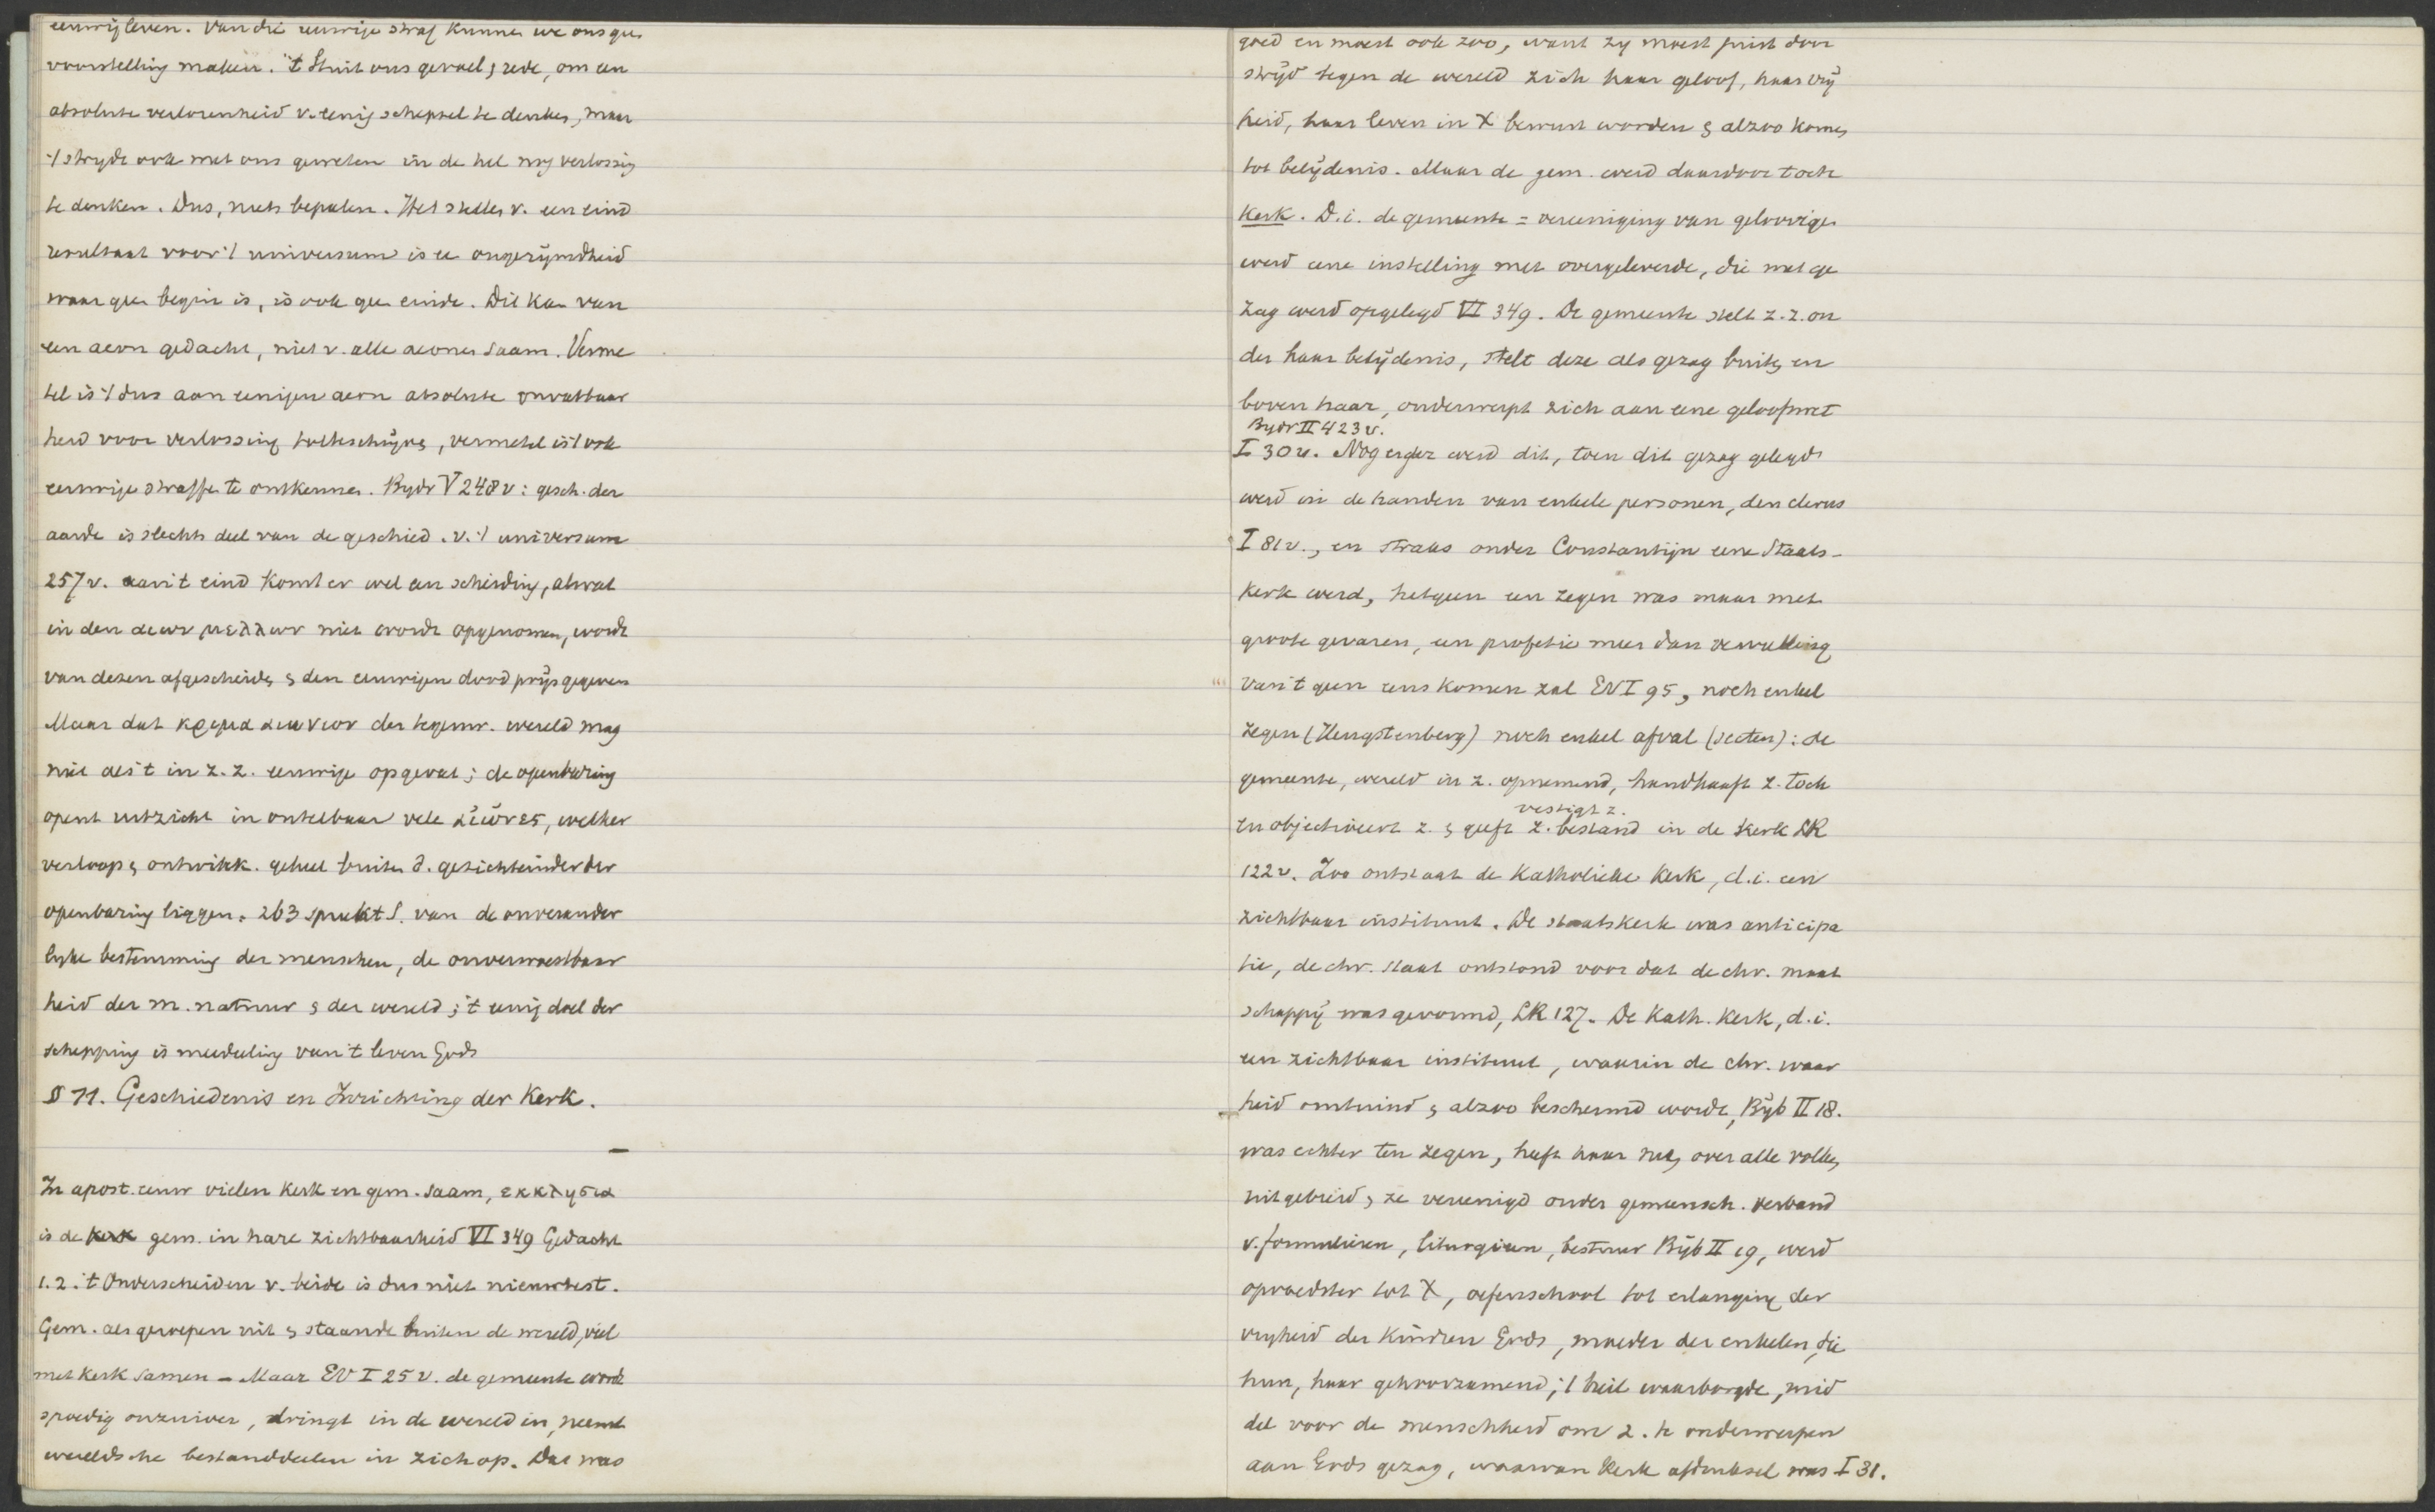 eeuwig leven. Van die eeuwige straf kunnen we ons geen
voorstelling maken. 't Stuit ons gevoel & rede, om een
absolute verlorenheid v. eenig schepsel te denken, maar
't strydt ook met ons geweten in de hel nog verlossing
te denken. Dus, niets bepalen. Het stellen v. een eind
resultaat voor 't universum is een ongerijmdheid
waar geen begin is, is ook geen einde. Dit kan van
een aeon gedacht, niet v. alle aeonen saam. Verme
tel is 't dus aan eenigen aeon absolute onvatbaar
heid voor verlossing toe te schrijven, vermetel is 't ook
eeuwige straffen te ontkennen. Bydr V 248 v: gesch. der
aarde is slechts deel van de geschied. v. 't universum
257 v. aan 't eind komt er wel een scheiding, al wat
in den αιων μελλων niet wordt opgenomen, wordt
van dezen afgescheiden & den eeuwigen dood prijsgegeven
Maar dat κριμα αιωνιον der tegenw. wereld mag
niet als 't in z. z. eeuwige opgevat; de openbaring
opent uitzicht in ontelbaar vele αιωνες, welker
verloop & ontwikk. geheel buiten d. gezichteinder der
openbaring liggen. 263 spreekt S. van de onverander
lyke bestemming der menschen, de onverwoestbaar
heid der m. natuur & der wereld; 't eenig doel der
schepping is meedeeling van 't leven Gods
§ 11. Geschiedenis en Inrichting der Kerk.
—
In apost. eeuw vielen Kerk en gem. saam, εκκλησια
is de gem. in hare zichtbaarheid VI 349 Gedacht
1.2. 't Onderscheiden v. beide is dus niet nieuwtest.
Gem. als geroepen uit & staande buiten de wereld, viel
met Kerk samen – Maar EV I 25 v. de gemeente wordt
spoedig onzuiver, dringt in de wereld in, neemt
wereldsche bestanddeelen in zich op. Dat was
goed en moest ook zoo, want zy moest juist door
strijd tegen de wereld zich haar geloof, haar vrij
heid, haar leven in X bewust worden & alzoo komen
tot belijdenis. Maar de gem. werd daardoor toch
Kerk. D.i. de gemeente = vereeniging van geloovigen
werd eene instelling met overgeleverde, die met ge
zag werd opgelegd VI 349. De gemeente stelt z. z. on
der haar belijdenis, stelt deze als gezag buiten en
boven haar, onderwerpt zich aan eene geloofswet
Bydr II 423 v.
I 30 v. Nog erger werd dit, toen dit gezag gelegd
werd in de handen van enkele personen, den clerus
I 81 v., en straks onder Constantijn eene Staats-
kerk werd, hetgeen een zegen was maar met
groote gevaren, een profetie meer dan vervulling
van 't geen eens komen zal EV I 95, noch enkel
zegen (Hengstenberg) noch enkel afval (secten): de
gemeente, wereld in z. opnemend, handhaaft z. toch
vestigt z.
en objectiveert z. & geeft z. bestand in de Kerk LR
122 v. Zoo ontstaat de Katholieke Kerk, d.i. een
zichtbaar instituut. De staatskerk was anticipa
tie, de chr. staat ontstond voor dat de chr. maat
schappij was gevormd, LR 127. De Kath. Kerk, d.i.
een zichtbaar instituut, waarin de chr. waar
heid omtuind & alzoo beschermd wordt, Bijb II 18.
was echter ten zegen, heeft haar net over alle volken
uitgebreid & ze vereenigd onder gemeensch. verband
v. formulieren, liturgieen, bestuur Bijb II 19, werd
opvoedster tot X, oefenschool tot erlanging der
vryheid der Kindren Gods, moeder der enkelen, die
hun, haar gehoorzamend, 't heil waarborgde, mid
del voor de menschheid om z. te onderwerpen
aan Gods gezag, waarvan Kerk afdruksel was I 31.